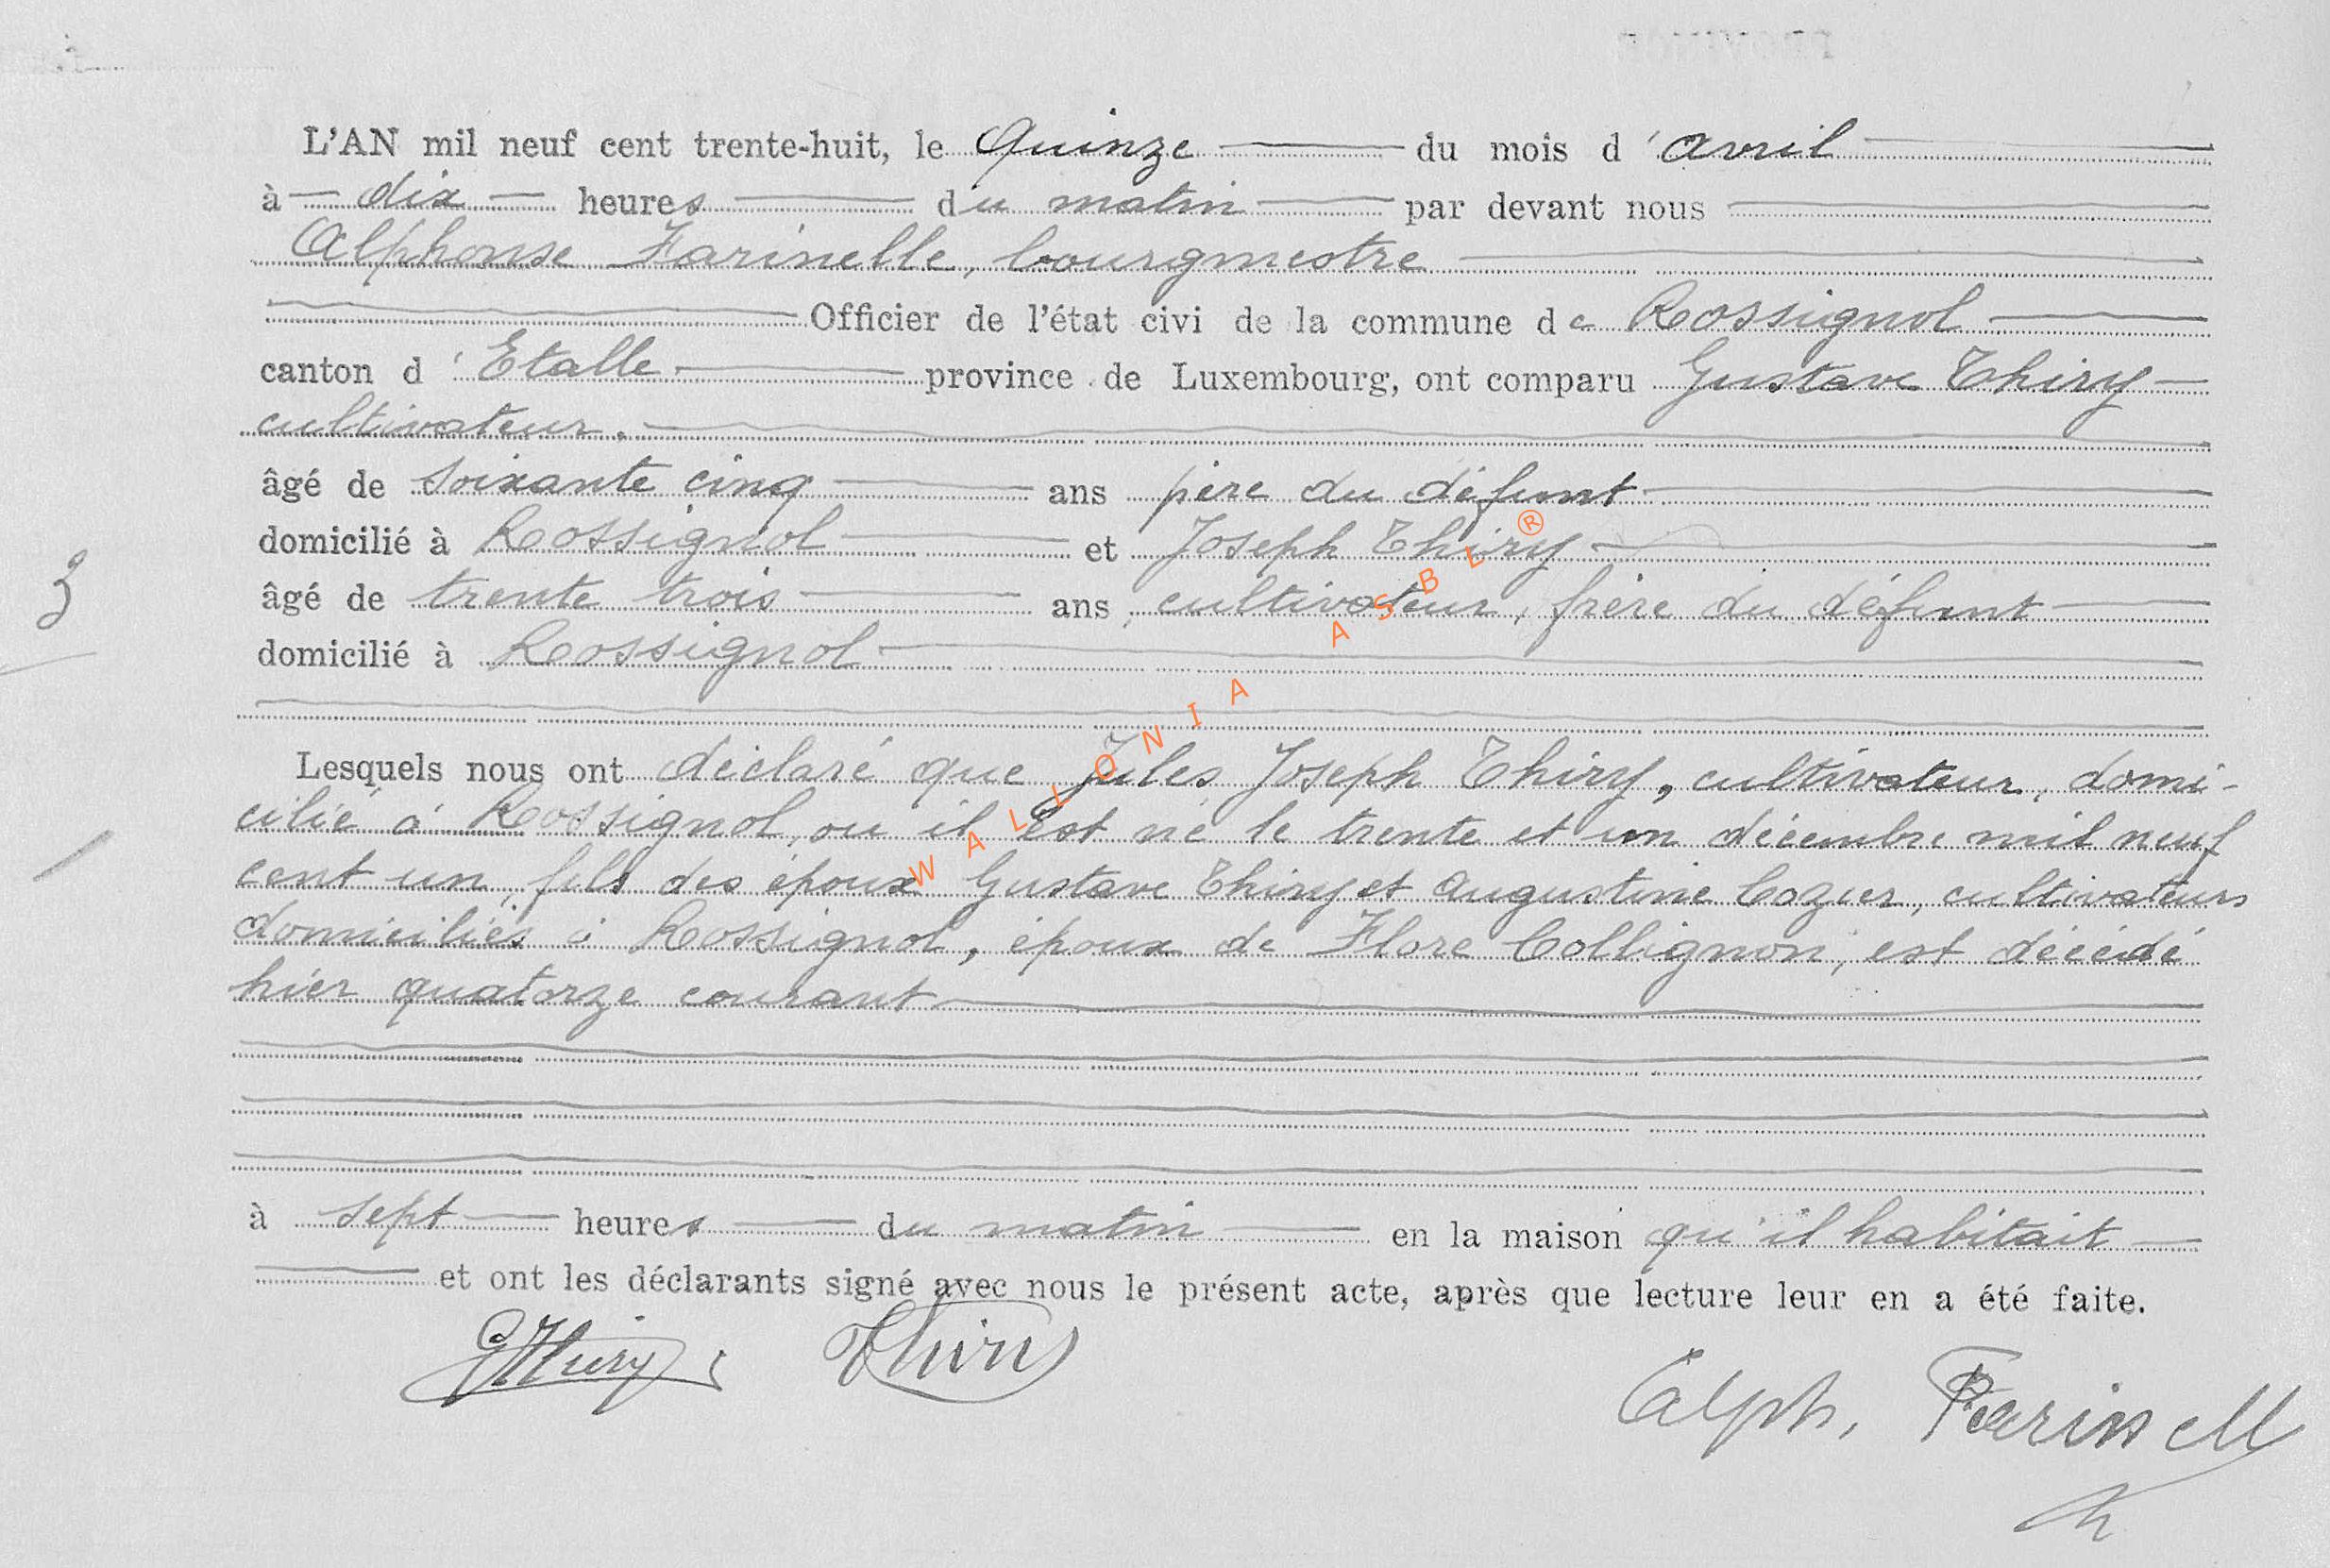 L'AN mil neuf cent trente-huit, le Quinze du mois d'avril
à dix heures du matin par devant nous
Alphonse Farinelle, bourgmestre
Officier de l'état civi de la commune de Rossignol
canton d'Etalle province de Luxembourg, ont comparu Gustave Thiry
cultivateur.
âgé de soixante cinq ans père du défunt
domicilié à Rossignol et Joseph Thiry
âgé de trente trois ans, cultivateur, frère du défunt
domicilié à Rossignol
Lesquels nous ont déclaré que Jules Joseph Thiry, cultivateur, domi-
cilié à Rossignol, où il est né le trente et un décembre mil neuf
cent un, fils des époux Gustave Thiry et Augustine Cozier, cultivateurs
domiciliés à Rossignol, époux de Flore Collignon, est décédé
hier quatorze courant
à sept heures du matin en la maison qu'il habitait
et ont les déclarants signé avec nous le présent acte, après que lecture leur en a été faite.
GThiry Thiry
Alph. Farinelle
3
WALLONIA ASBL ®